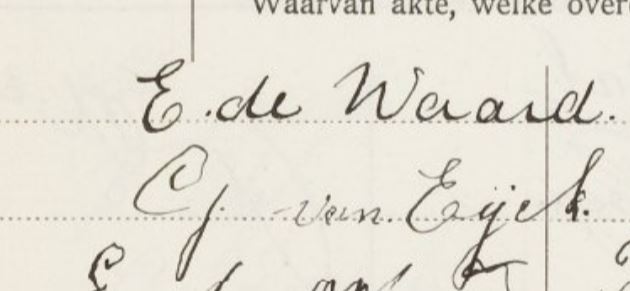 Waarvan akte, welke over
E. de Waard.
Cj. van Eijck.